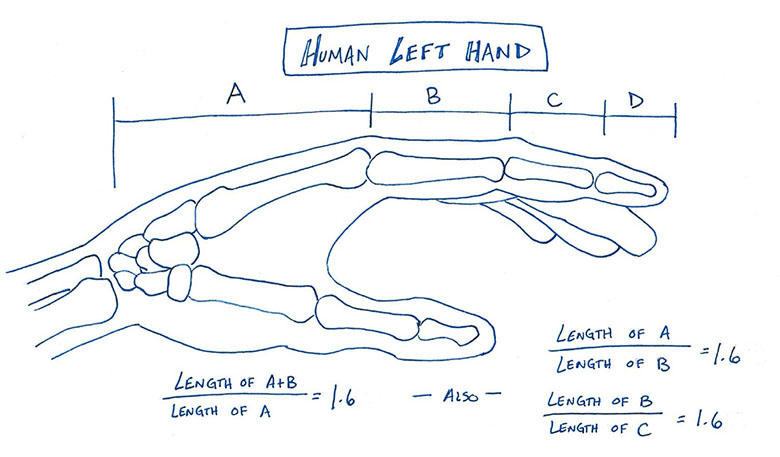 HUMAN LEFT HAND
A B C D
LENGTH OF A+B
LENGTH OF A
= 1.6
— ALSO —
LENGTH OF A
LENGTH OF B
= 1.6
LENGTH OF B
LENGTH OF C
= 1.6